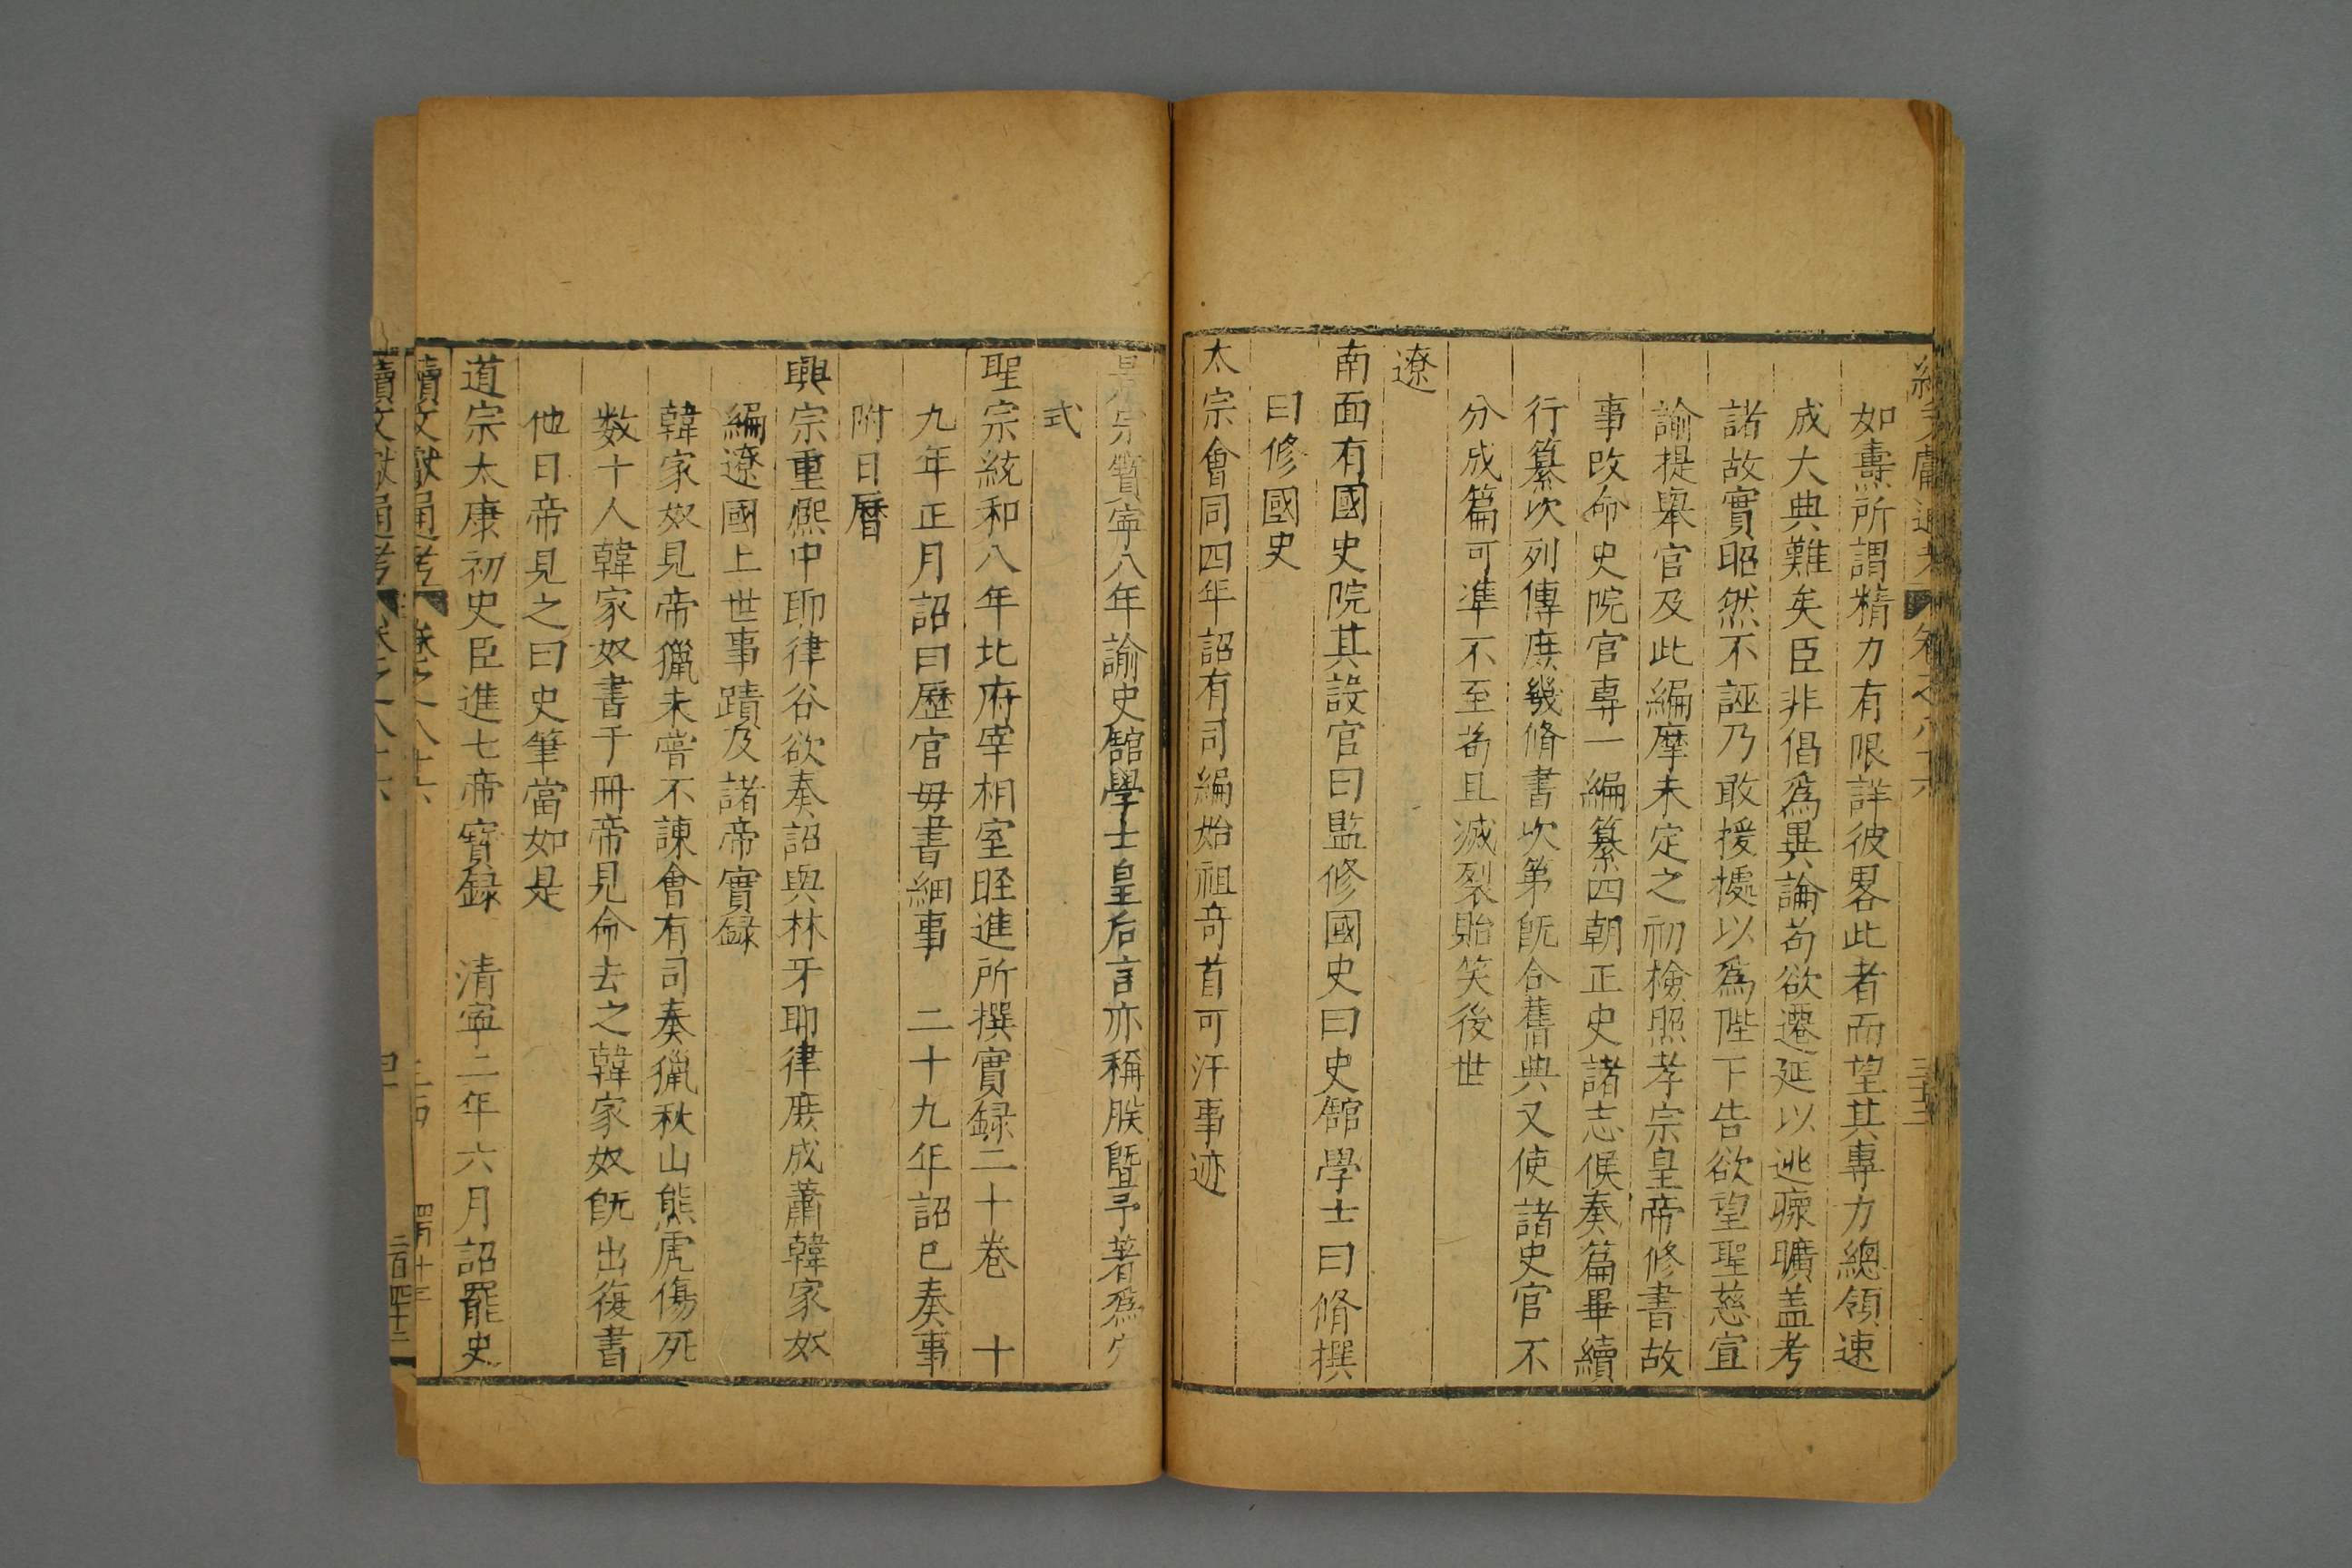 如燾所謂精力有限詳彼畧此者而望其專力總領速
成大典難矣臣非倡爲異論苟欲遷延以逃瘝曠盖考
諸故實昭然不誣乃敢援據以爲陛下告欲望聖慈宣
諭提舉官及此編摩未定之初檢照孝宗皇帝修書故
事改命史院官專一編纂四朝正史諸志候奏篇畢續
行纂次列傳庶幾脩書次第旣合舊典又使諸史官不
分成篇可準不至苟且滅裂貽笑後世
遼
南面有國史院其設官曰監修國史曰史館學士曰脩撰
曰修國史
太宗會同四年詔有司編始祖竒首可汗事迹
景宗寳寧八年諭史館學士皇后言亦稱朕曁予著爲定
式
聖宗統和八年北府宰相室昉進所撰實録二十卷 十
九年正月詔曰歷官毋書細事 二十九年詔已奏事
附日曆
興宗重熈中耶律谷欲奏詔與林牙耶律庶成蕭韓家奴
編遼國上世事蹟及諸帝實録
韓家奴見帝獵未嘗不諫會有司奏獵秋山熊虎傷死
数十人韓家奴書于冊帝見命去之韓家奴旣出復書
他日帝見之曰史筆當如是
道宗太康初史臣進七帝寳録 清寧二年六月詔罷史
續文獻通考 卷之八十六